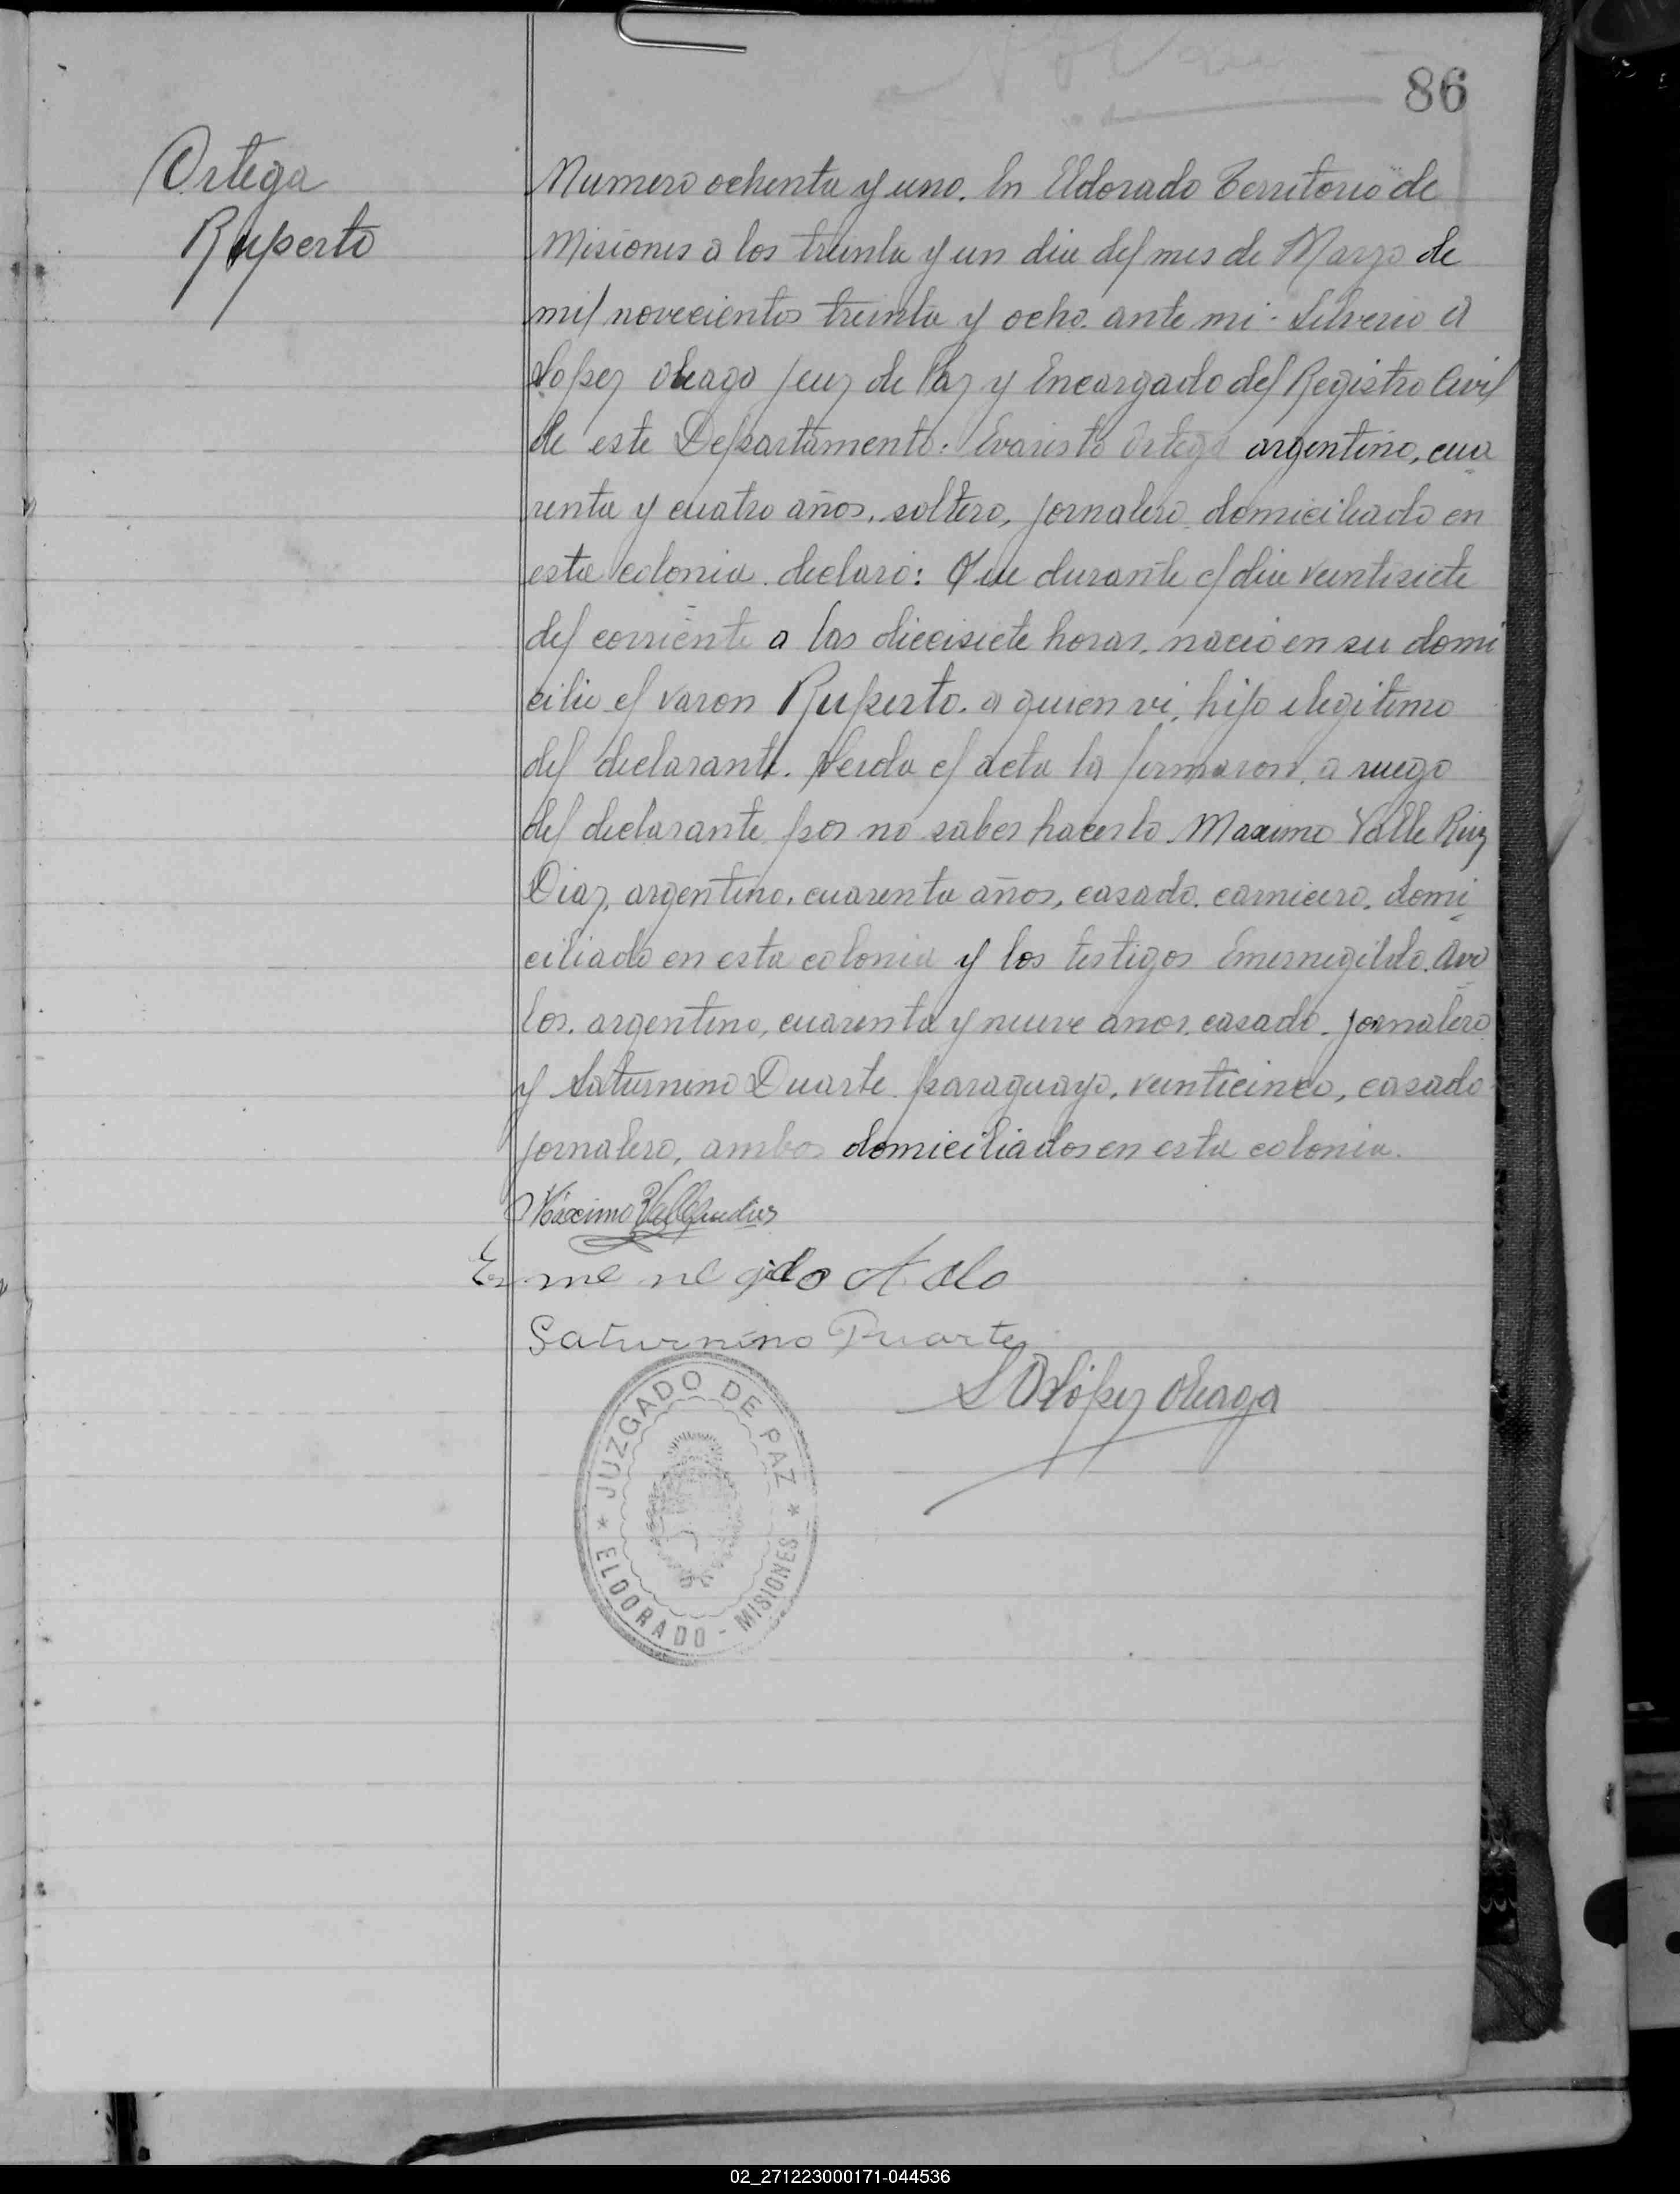 86
Ortega
Ruperto
Numero ochenta y uno. En Eldorado Territorio de
Misiones a los treinta y un dia del mes de Marzo de
mil novecientos treinta y ocho. ante mi. Silverio A
Lopez Oleaga Juez de Paz y Encargado del Registro Civil
de este Departamento: Evaristo Ortega argentino, cua
renta y cuatro años, soltero, jornalero domiciliado en
esta colonia declaró: Que durante el dia veintisiete
del corriente a las diecisiete horas, nació en su domi
cilio el varon Ruperto. a quien vi, hijo ilegitimo
del declarante. Leida el acta la firmaron, a ruego
del declarante por no saber hacerlo Maximo Valle Ruiz
Diaz, argentino, cuarenta años, casado, carnicero, domi
ciliado en esta colonia y los testigos Emernegildo Ava
los, argentino, cuarenta y nueve anos, casado, jornalero
y Saturnino Duarte paraguayo, veinticinco, casado
jornalero, ambos domiciliados en esta colonia.
Máximo
Saturnino Duarte
S A López Oleaga
JUZGADO DE PAZ
* ELDORADO - MISIONES *
02_271223000171-044536